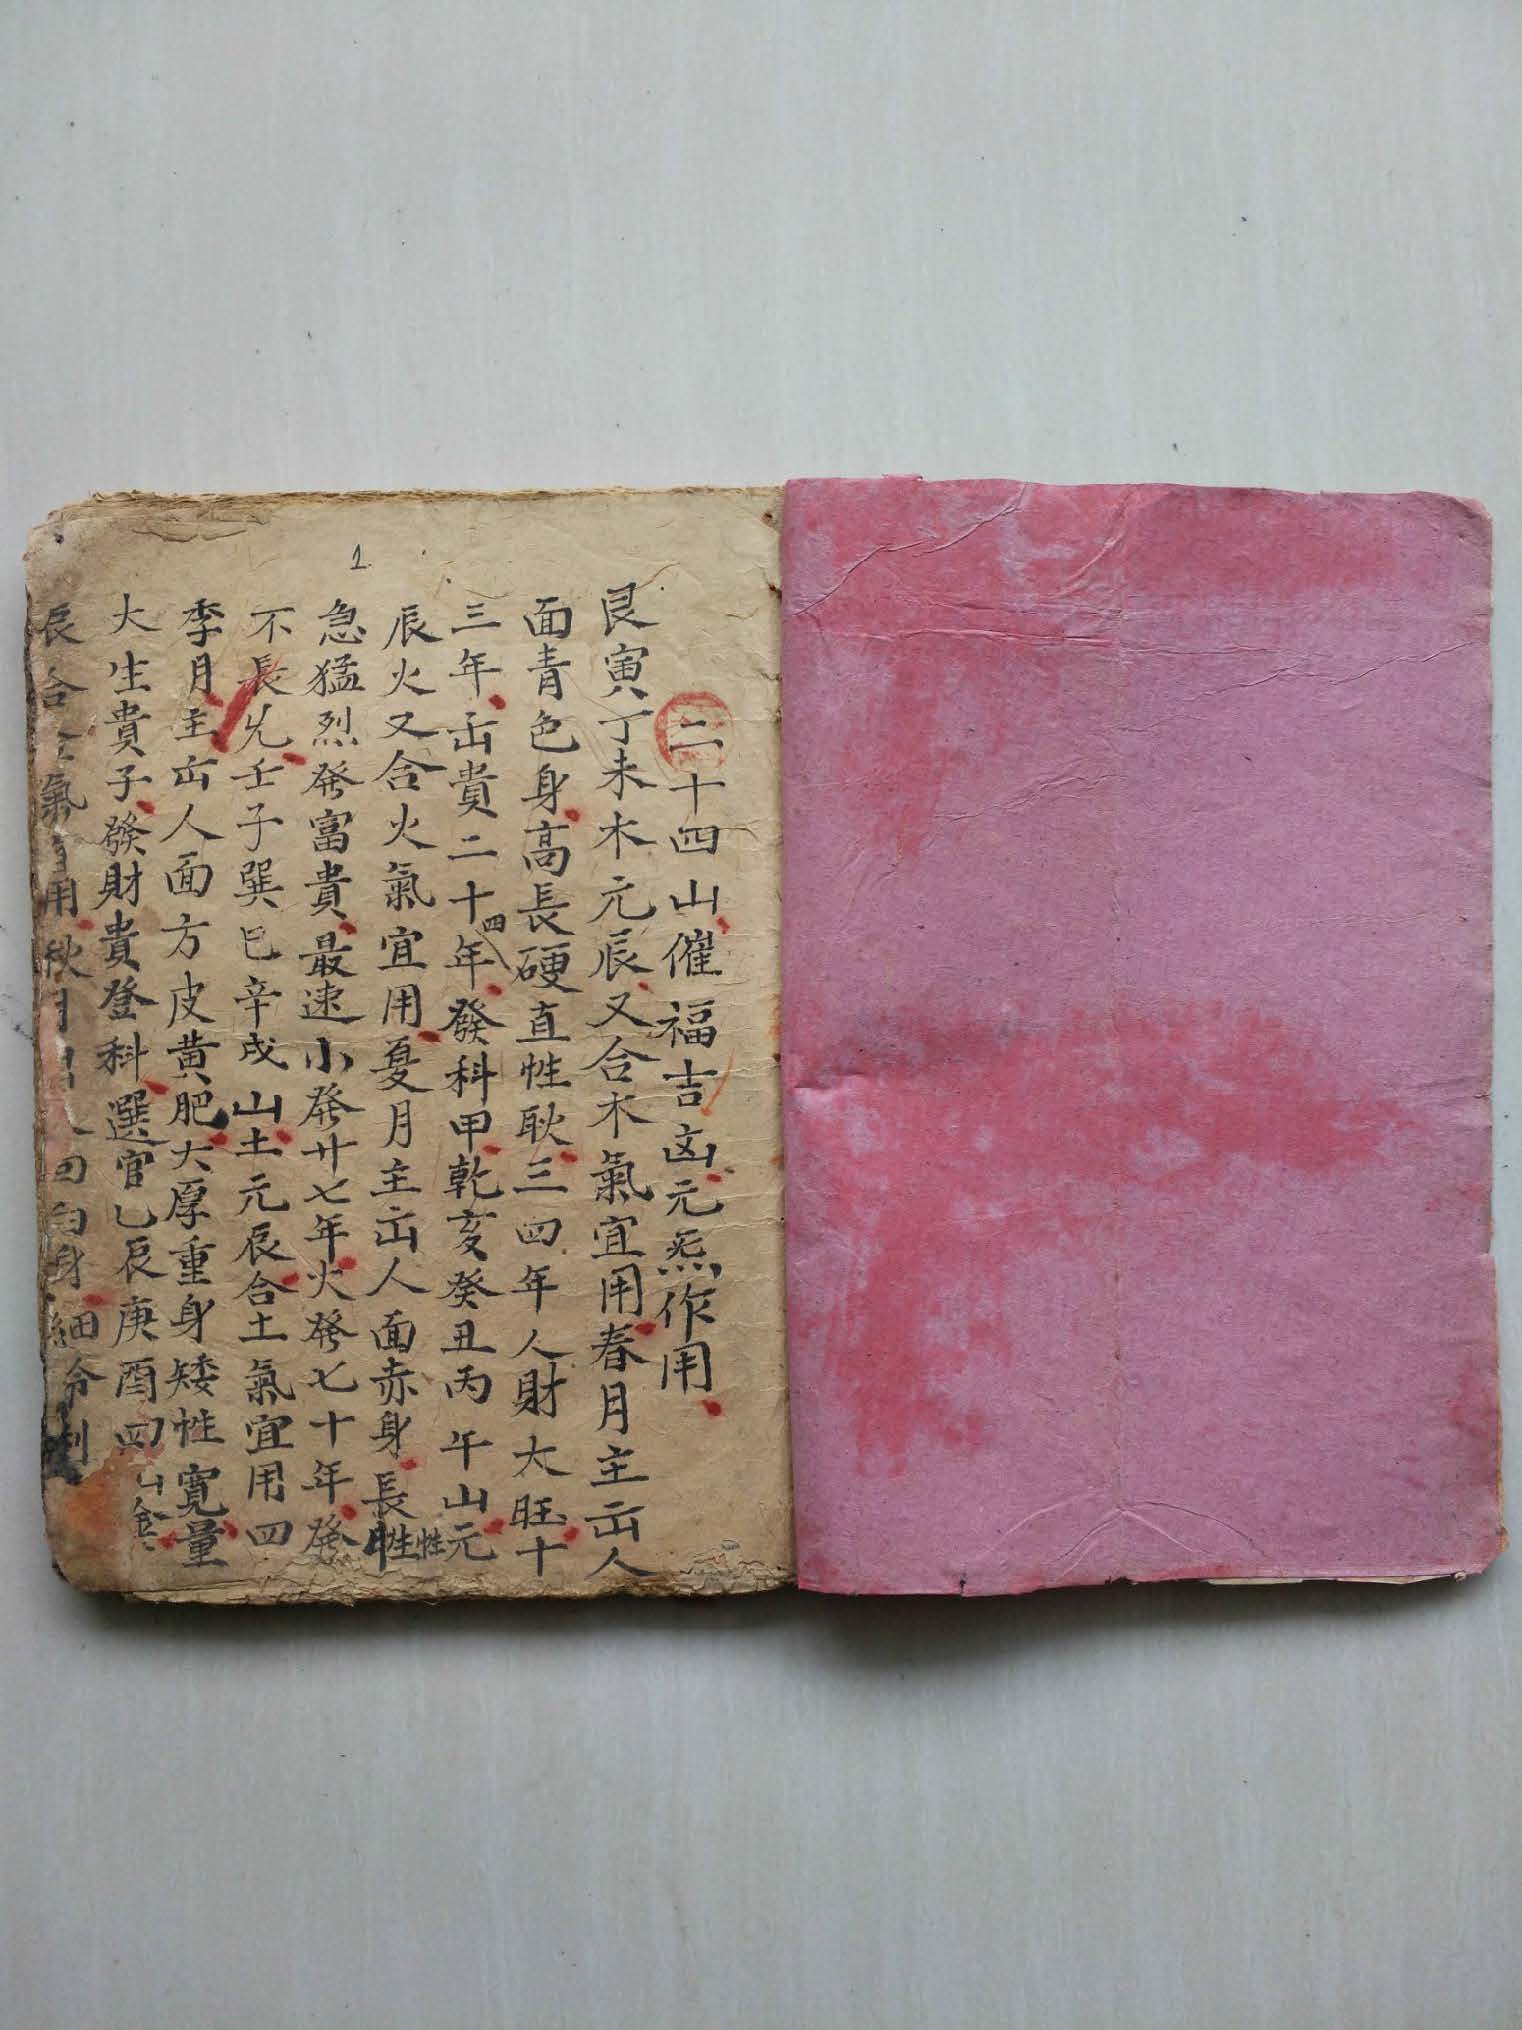 1
二十四山催福吉凶元炁作用
艮寅丁未木元辰又合木氣宜用春月主出人
面青色身高長硬直性耿三四年人財大旺十
三年出貴二十四年發科甲乾亥癸丑丙午山元
辰火又合火氣宜用夏月主出人面赤身長性性
急猛烈發富貴最速小發廿七年火發七十年發
不長久壬子巽巳辛戌山土元辰合土氣宜用四
季月主出人面方皮黃肥大厚重身矮性寬量
大生貴子發財貴登科選官乙辰庚酉四山金
辰合金氣用秋月出人面白身細伶俐